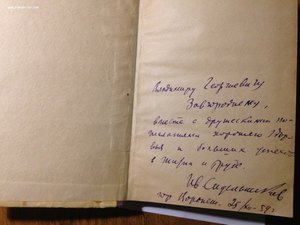 Владимиру Георгиевичу
Завгороднему,
вместе с дружескими по-
желаниями хорошего здоро-
вья и больших успехов
в жизни и труде.
Ив Сидельников
гор Воронеж. 59 г